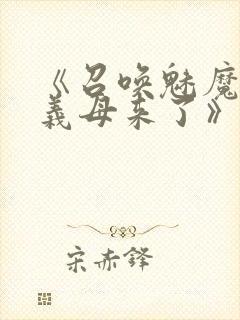 《召唤魅魔
義母来了》
宋赤鋒